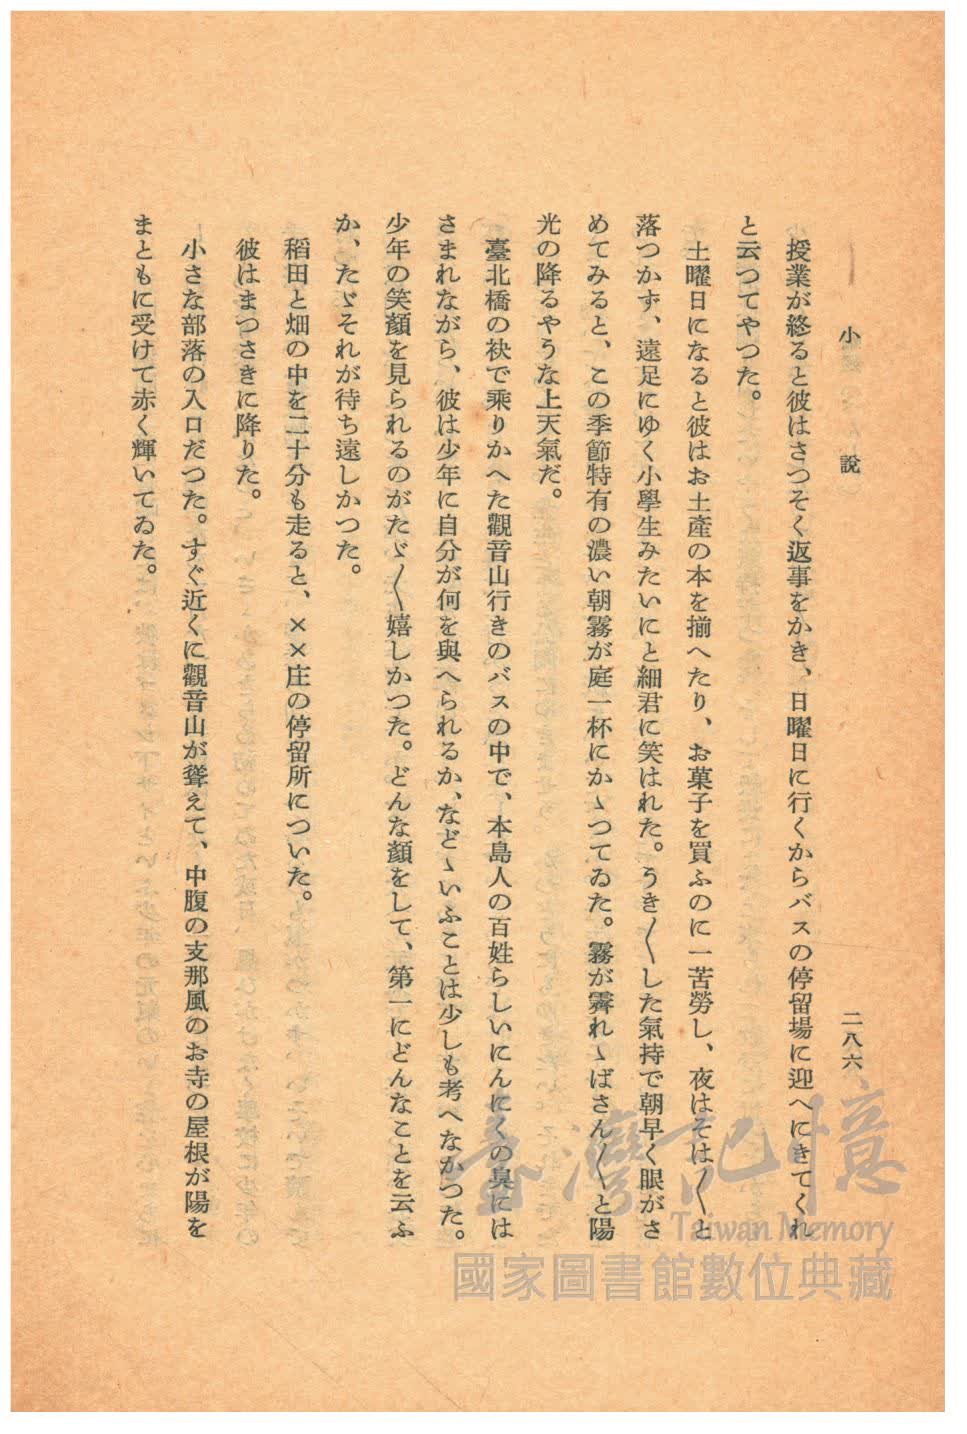 小説
二八六
授業が終ると彼はさつそく返事をかき、日曜日に行くからバスの停留場に迎へにきてくれ
と云つてやつた。
土曜日になると彼はお土産の本を揃へたり、お菓子を買ふのに一苦勞し、夜はそは〱と
落つかず、遠足にゆく小學生みたいにと細君に笑はれた。うき〱した氣持で朝早く眼がさ
めてみると、この季節特有の濃い朝霧が庭一杯にかゝつてゐた。霧が霽れゝばさん〱と陽
光の降るやうな上天氣だ。
臺北橋の袂で乘りかへた觀音山行きのバスの中で、本島人の百姓らしいにんにくの臭には
さまれながら、彼は少年に自分が何を與へられるか、などゝいふことは少しも考へなかつた。
少年の笑顏を見られるのがたゞ〱嬉しかつた。どんな顏をして、第一にどんなことを云ふ
か、たゞそれが待ち遠しかつた。
稻田と畑の中を二十分も走ると、××庄の停留所についた。
彼はまつさきに降りた。
小さな部落の入口だつた。すぐ近くに觀音山が聳えて、中腹の支那風のお寺の屋根が陽を
まともに受けて赤く輝いてゐた。
臺灣記憶
Taiwan Memory
國家圖書館數位典藏